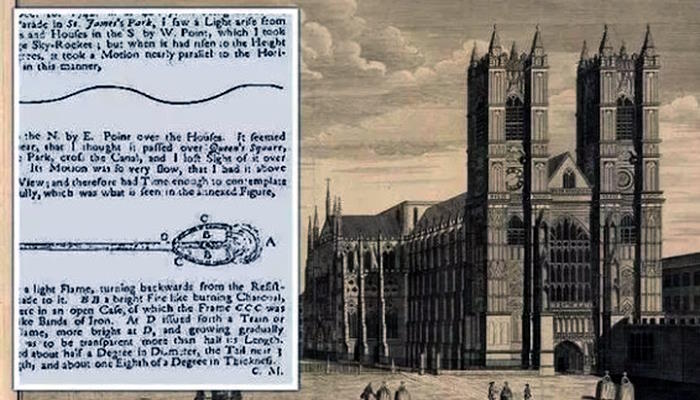 arade in St. James's Park, I ſaw a Light ariſe from
s and Houſes in the S. by W. Point, which I took
e Sky-Rocket; but when it had riſen to the Height
rees, it took a Motion nearly parallel to the Hori-
in this manner,
the N. by E. Point over the Houſes. It ſeemed
ear, that I thought it paſſed over Queen's Square,
e Park, croſs the Canal, and I loſt Sight of it over
Its Motion was ſo very ſlow, that I had it above
View; and therefore had Time enough to contemplate
ully, which was what is ſeen in the annexed Figure,
C
B
D A
B
C
a light Flame, turning backwards from the Reſiſt-
ade to it. B B a bright Fire like burning Charcoal,
ere in an open Caſe, of which the Frame C C C was
ike Bands of Iron. At D iſſued forth a Train or
lame, more bright at D, and growing gradually
as to be tranſparent more than half its Length.
d about half a Degree in Diameter, the Tail near 3
gth, and about one Eighth of a Degree in Thickneſs.
C. M.